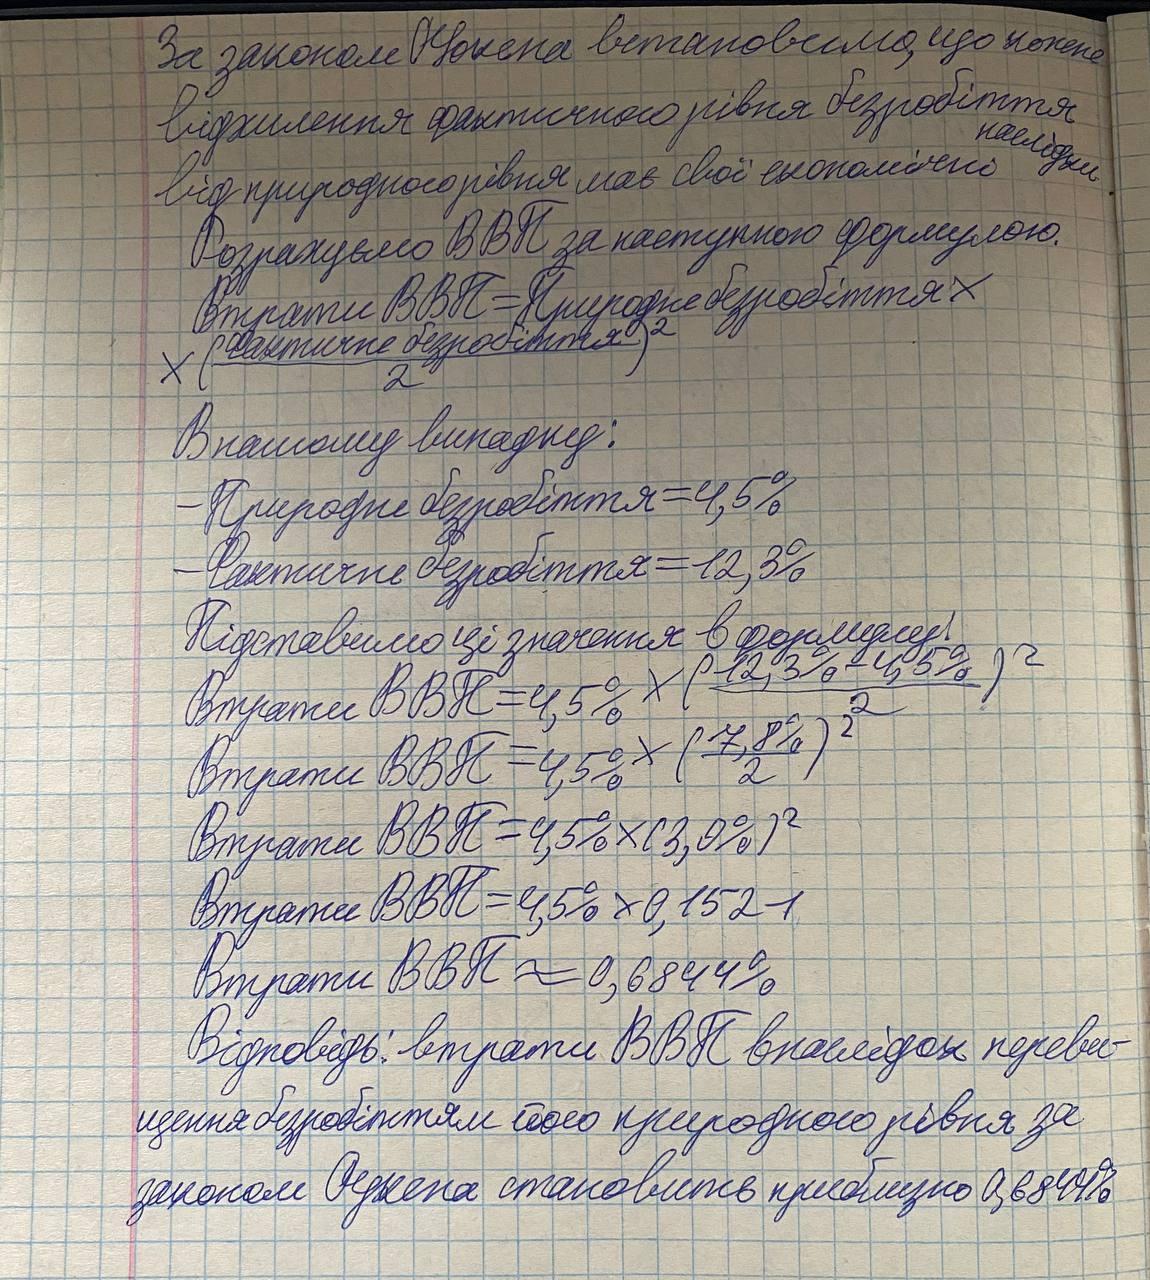 За законом Оукена встановимо, що кожене
відхилення фактичного рівня безробіття
від природного рівня має свої економічні наслідки
Розрахуємо ВВП за наступною формулою.
Втрати ВВП = Природне безробіття ×
× (Фактичне безробіття / 2)²
В нашому випадку:
- Природне безробіття = 4,5%
- Фактичне безробіття = 12,3%
Підставимо ці значення в формулу:
Втрати ВВП = 4,5% × (12,3% - 4,5% / 2)²
Втрати ВВП = 4,5% × (7,8% / 2)²
Втрати ВВП = 4,5% × (3,9%)²
Втрати ВВП = 4,5% × 0,1521
Втрати ВВП ≈ 0,6844%
Відповідь: втрати ВВП внаслідок переви-
щення безробіттям його природного рівня за
законом Оукена становить приблизно 0,6844%